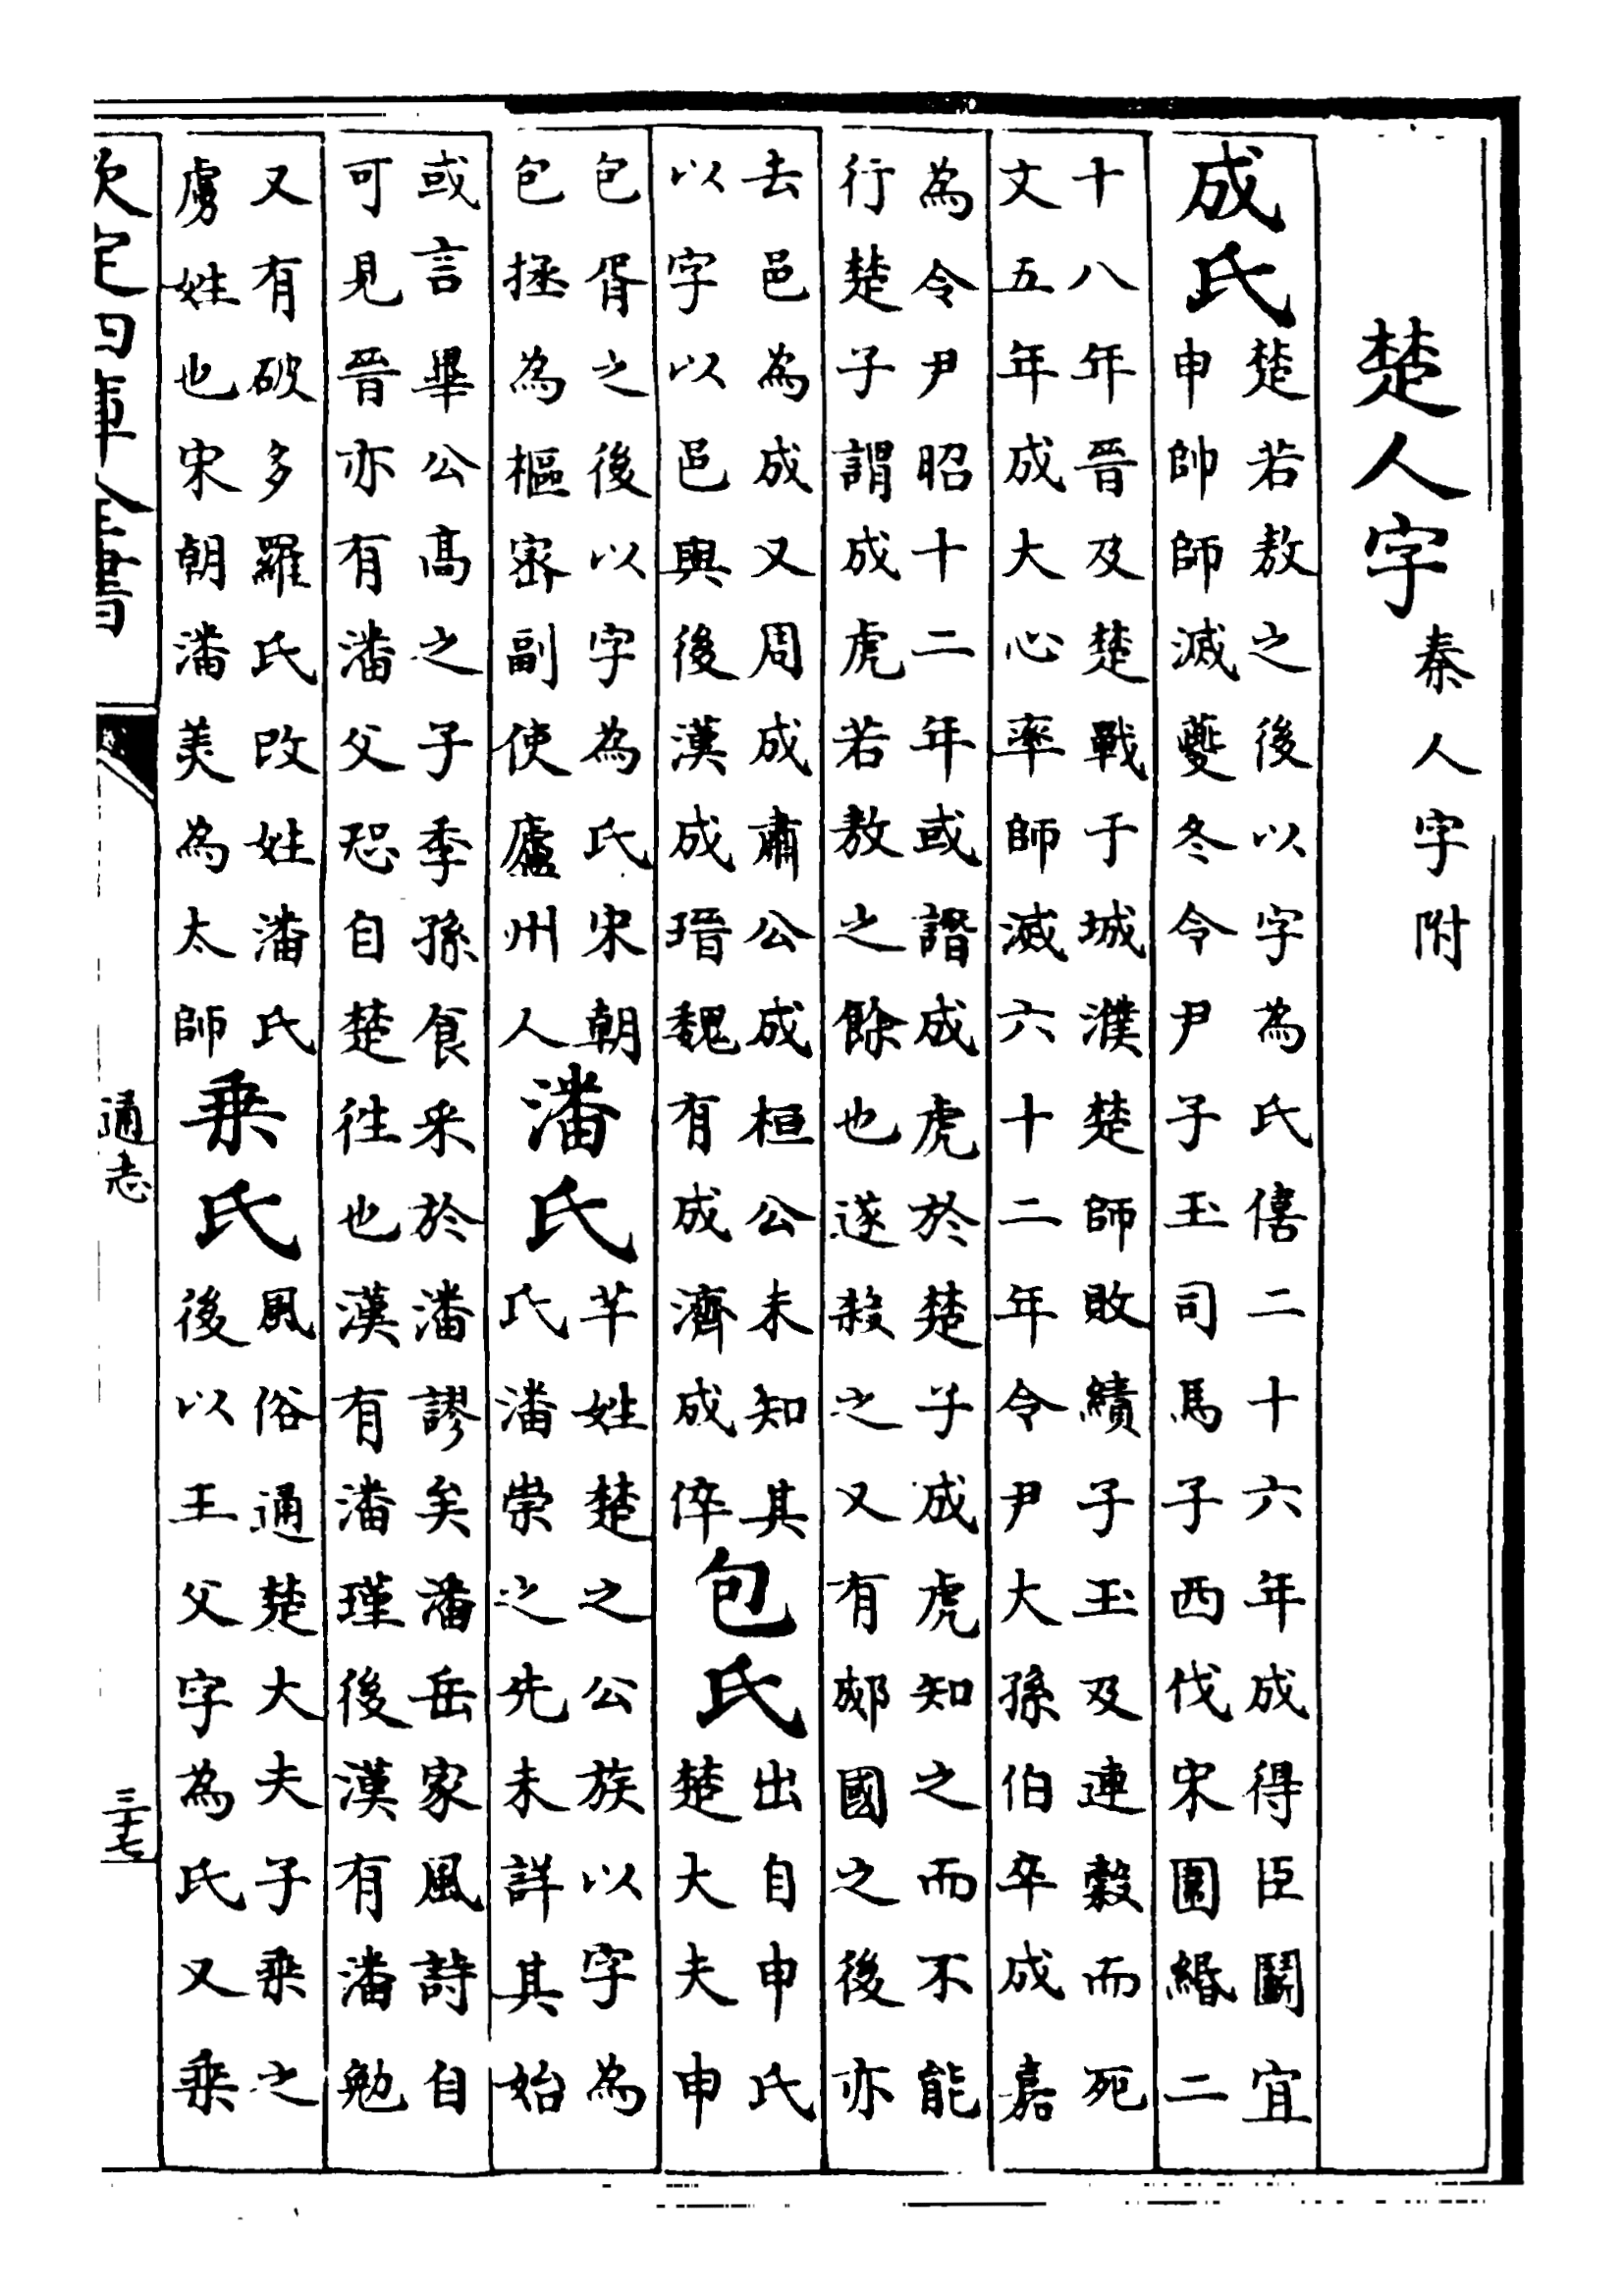 楚人字秦人字附
成氏楚若敖之後以字為氏僖二十六年成得臣鬭宜
申帥師滅夔冬令尹子玉司馬子西伐宋圍緡二
十八年晉及楚戰于城濮楚師敗績子玉及連穀而死
文五年成大心率師滅六十二年令尹大孫伯卒成嘉
為令尹昭十二年或譖成虎於楚子成虎知之而不能
行楚子謂成虎若敖之餘也遂殺之又有郕國之後亦
去邑為成又周成肅公成桓公未知其
以字以邑與後漢成瑨魏有成濟成倅
包氏出自申氏
楚大夫申
包胥之後以字為氏宋朝
包拯為樞密副使廬州人
潘氏芊姓楚之公族以字為
氏潘崇之先未詳其始
或言畢公高之子季孫食采於潘謬矣潘岳家風詩自
可見晉亦有潘父恐自楚往也漢有潘瑾後漢有潘勉
又有破多羅氏改姓潘氏
虜姓也宋朝潘美為太師
乗氏風俗通楚大夫子乗之
後以王父字為氏又乗
欽定四庫全書
通志
三十七